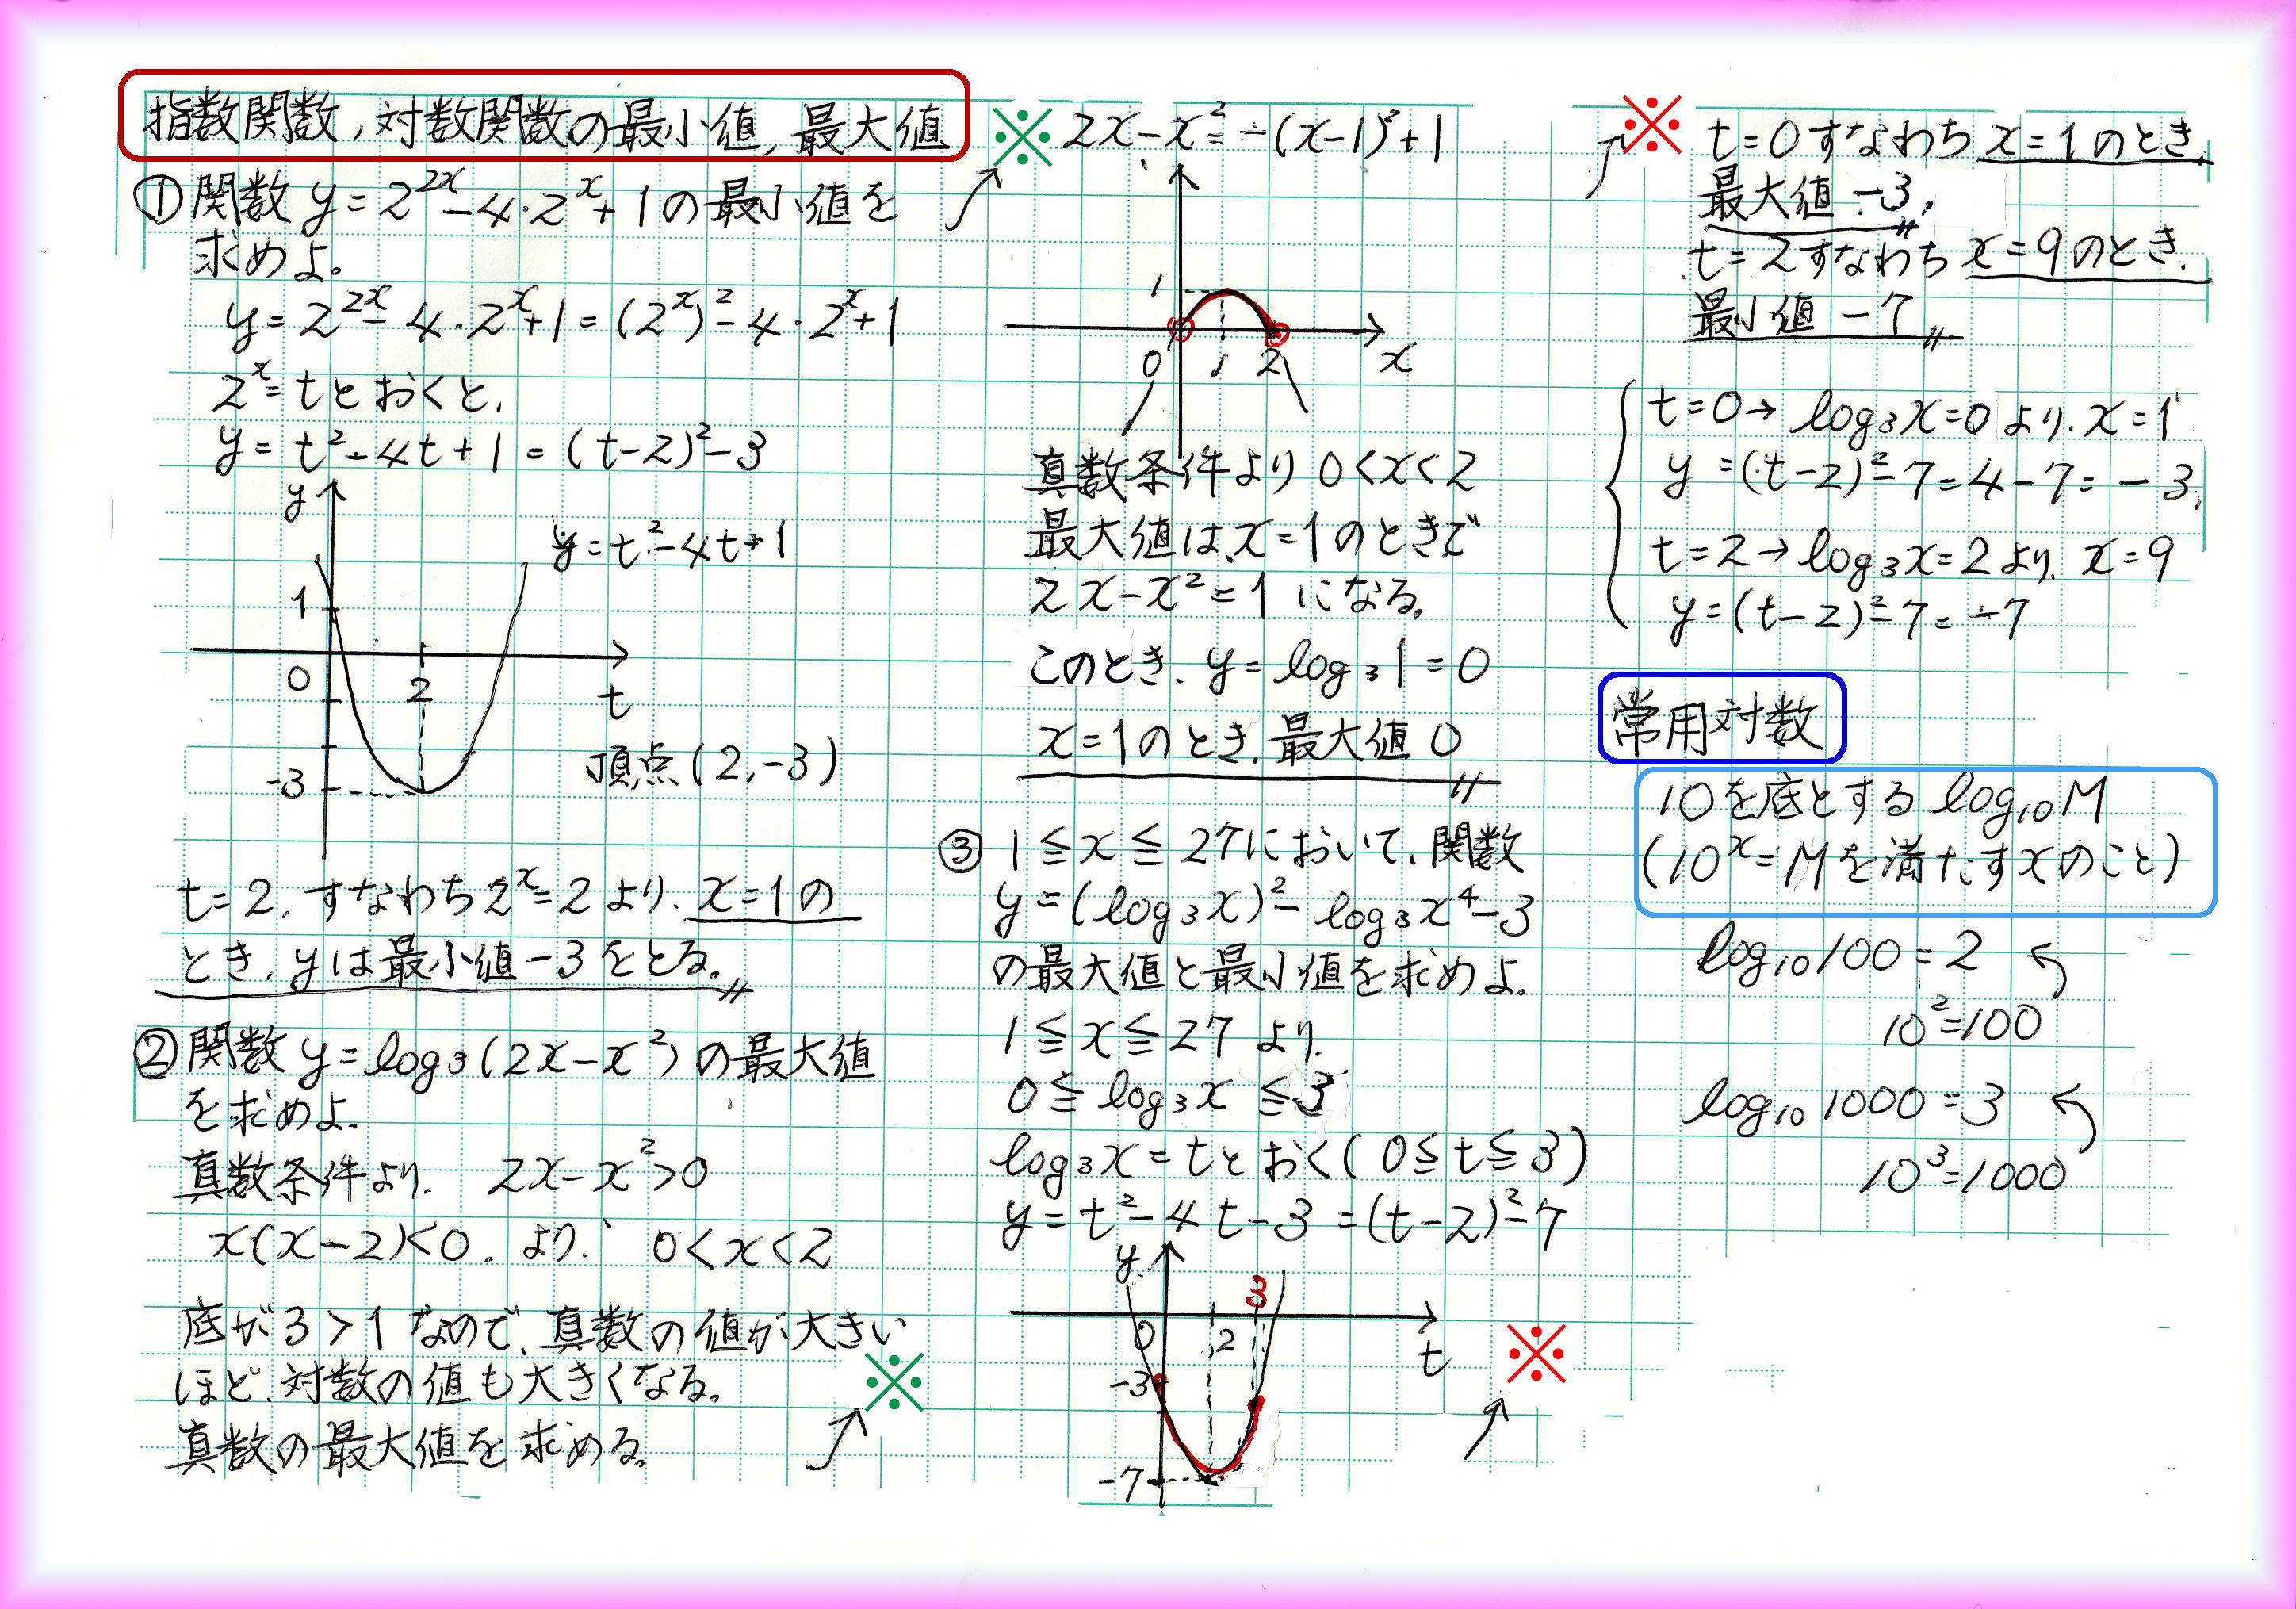 指数関数,対数関数の最小値,最大値
①関数 y=2²ˣ-4・2ˣ+1の最小値を
求めよ。
y=2²ˣ-4・2ˣ+1=(2ˣ)²-4・2ˣ+1
2ˣ=tとおくと,
y=t²-4t+1=(t-2)²-3
y
y=t²-4t+1
1
0
2
t
-3
頂点(2,-3)
t=2,すなわち2ˣ=2より,x=1の
とき,yは最小値-3をとる。
②関数 y=log₃(2x-x²)の最大値
を求めよ.
真数条件より, 2x-x²>0
x(x-2)<0.より, 0<x<2
底が3>1なので,真数の値が大きい
ほど,対数の値も大きくなる。
真数の最大値を求める。
※
※ 2x-x²=-(x-1)²+1
1
0 1 2 x
真数条件より 0<x<2
最大値は,x=1のときで
2x-x²=1 になる。
このとき,y=log₃1=0
x=1のとき,最大値0
③ 1≦x≦27において,関数
y=(log₃x)²-log₃x⁴-3
の最大値と最小値を求めよ。
1≦x≦27 より,
0≦log₃x≦3
log₃x=tとおく(0≦t≦3)
y=t²-4t-3=(t-2)²-7
y
3
0 2 t
-3
-7
※
※ t=0すなわちx=1のとき,
最大値-3,
t=2すなわちx=9のとき,
最小値-7
t=0→log₃x=0より,x=1
y=(t-2)²-7=4-7=-3,
t=2→log₃x=2より,x=9
y=(t-2)²-7=-7
常用対数
10を底とする log₁₀M
(10ˣ=Mを満たすxのこと)
log₁₀100=2
10²=100
log₁₀1000=3
10³=1000